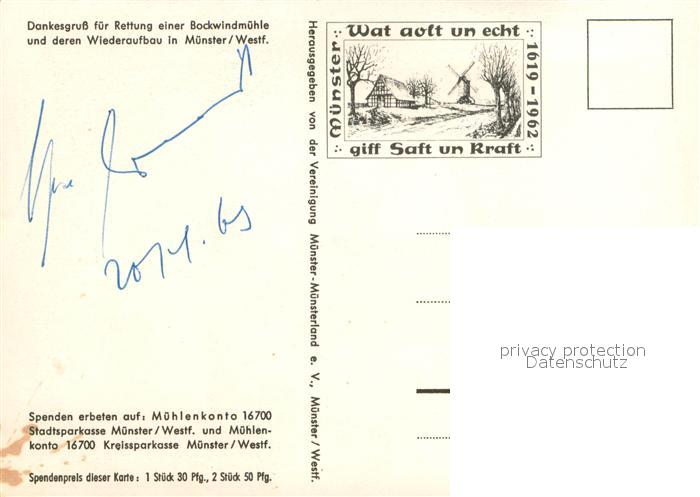 Dankesgruß für Rettung einer Bockwindmühle
und deren Wiederaufbau in Münster/Westf.
Spenden erbeten auf: Mühlenkonto 16700
Stadtsparkasse Münster/Westf. und Mühlen-
konto 16700 Kreissparkasse Münster/Westf.
Spendenpreis dieser Karte: 1 Stück 30 Pfg., 2 Stück 50 Pfg.
Herausgegeben von der Vereinigung Münster-Münsterland e. V., Münster/Westf.
Münster
Wat aolt un echt
1619-1962
giff Saft un Kraft
privacy protection
Datenschutz